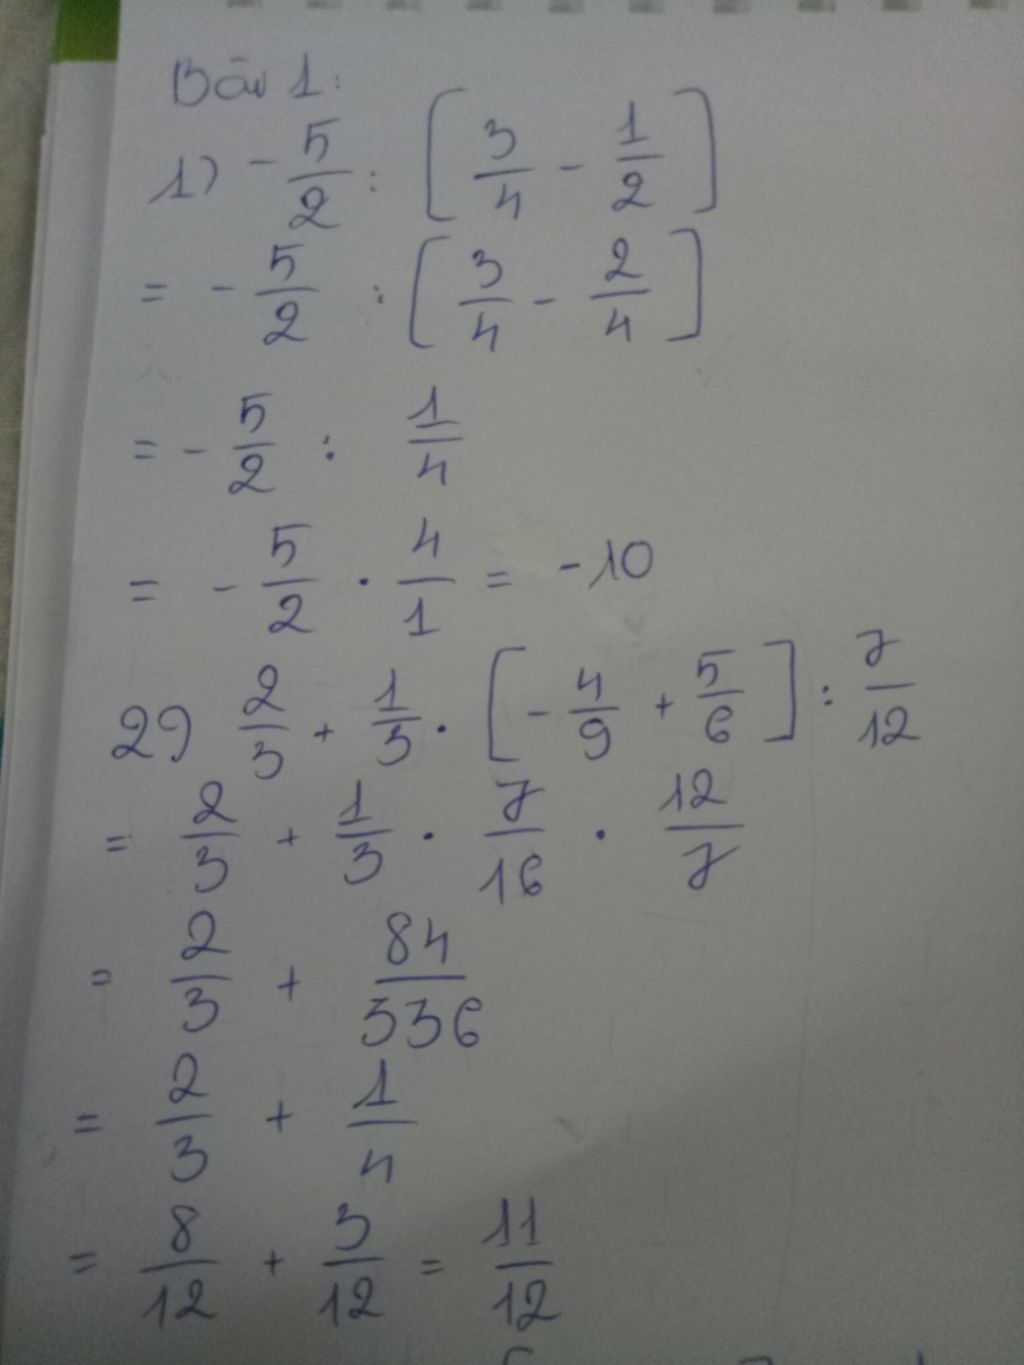 Bài 1:
1) -5/2 : [3/4 - 1/2]
= -5/2 : [3/4 - 2/4]
= -5/2 : 1/4
= -5/2 · 4/1 = -10
2) 2/3 + 1/3 · [-4/9 + 5/6] : 7/12
= 2/3 + 1/3 · 7/16 · 12/7
= 2/3 + 84/336
= 2/3 + 1/4
= 8/12 + 3/12 = 11/12